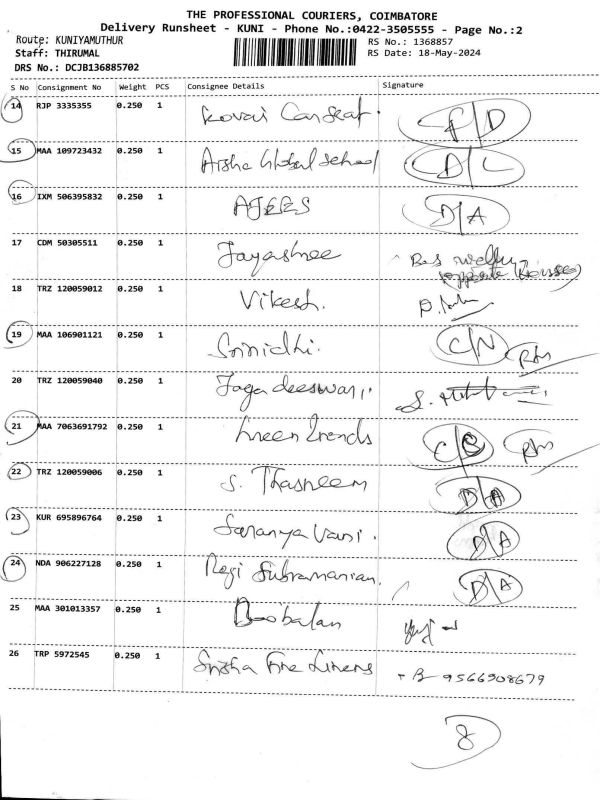 THE PROFESSIONAL COURIERS, COIMBATORE
Delivery Runsheet - KUNI - Phone No.:0422-3505555 - Page No.:2
Route: KUNIYAMUTHUR RS No.: 1368857
Staff: THIRUMAL RS Date: 18-May-2024
DRS No.: DCJB136885702
S No Consignment No Weight PCS Consignee Details Signature
14 RJP 3335355 0.250 1 Kovai Car F/D
15 MAA 109723432 0.250 1 Aisha Global School D/L
16 IXM 506395832 0.250 1 D/A
17 CDM 50305511 0.250 1 Jayashree opposite
18 TRZ 120059012 0.250 1 Vikesh.
19 MAA 106901121 0.250 1 Srinidhi. C/N
20 TRZ 120059040 0.250 1 Jagadeeswari. S.
21 MAA 7063691792 0.250 1 Green Trends
22 TRZ 120059006 0.250 1 S. Thasneem D/A
23 KUR 695896764 0.250 1 Saranya Vani. D/A
24 NDA 906227128 0.250 1 Regi Subramanian. D/A
25 MAA 301013357 0.250 1 Boobalan
26 TRP 5972545 0.250 1 Fine Linens 9566908679
8